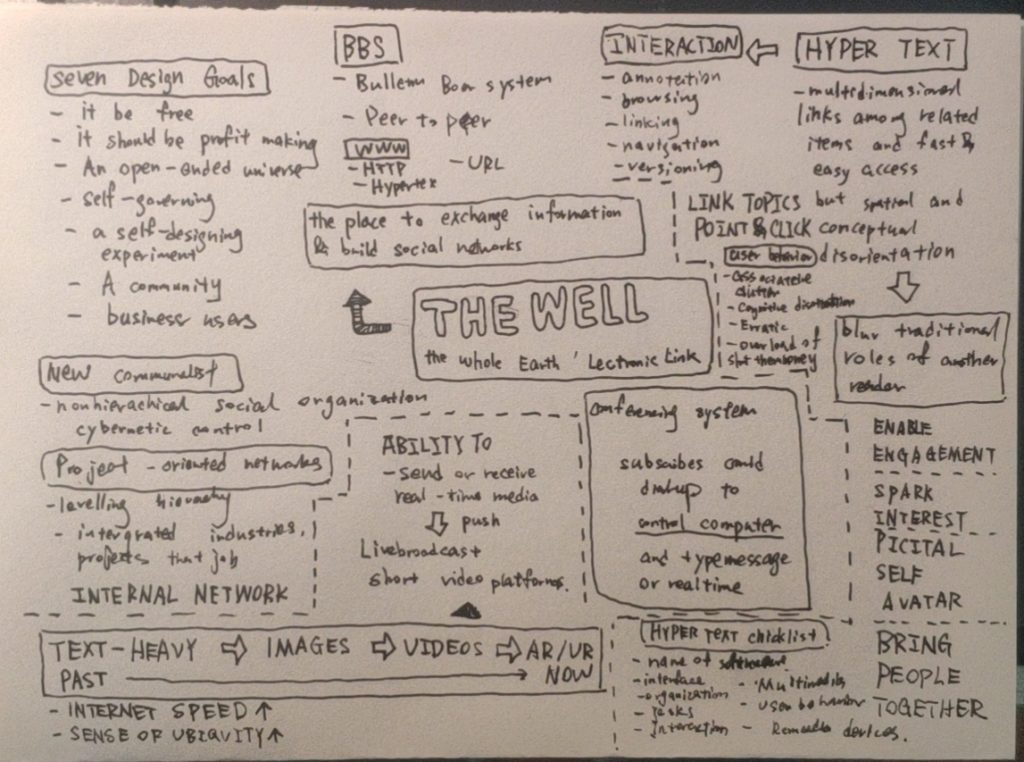 seven Design Goals
- it be free
- it should be profit making
- An open-ended universe
- self-governing
- a self-designing
experiment
- A community
- business users
BBS
- Bulletin Boar system
- Peer to peer
WWW
- HTTP
- Hypertex
- URL
the place to exchange information
& build social networks
INTERACTION
- annotation
- browsing
- linking
- navigation
- versioning
HYPER TEXT
- multidimensional
links among related
items and fast &
easy access
LINK TOPICS but spatial and
POINT & CLICK conceptual
disorientation
user behavior
- associatetive
- Cognitive
- Erratic
- overload of
blur traditional
roles of another
reader
THE WELL
the whole Earth 'Lectronic Link
New communalist
- nonhierachical social organization
cybernetic control
Project - oriented networks
- levelling hierachy
- intergrated industries,
projects that job
INTERNAL NETWORK
ABILITY TO
- send or receive
real-time media
push
Livebroadcast
short video platforms.
conferencing system
subscibes could
dialup to
control computer
and type message
or realtime
ENABLE
ENGAGEMENT
SPARK
INTEREST
PICITAL
SELF
AVATAR
BRING
PEOPLE
TOGETHER
TEXT-HEAVY IMAGES VIDEOS AR/VR
PAST NOW
- INTERNET SPEED ↑
- SENSE OF UBIQUITY ↑
HYPER TEXT chicklist
- name of
- interface
- organization
- Interaction
- Multimedia
- user behavior
- devices.